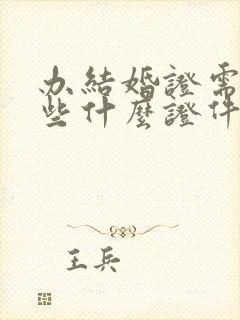 办結婚證需
些什麼證件
王兵